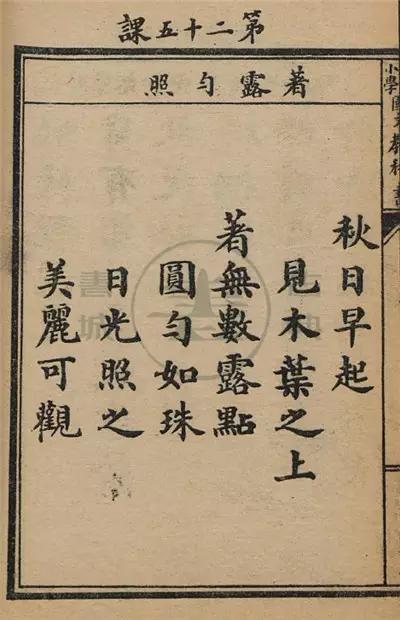 第二十五課
著露勻照
秋日早起
見木葉之上
著無數露點
圓勻如珠
日光照之
美麗可觀
小學國文教科書